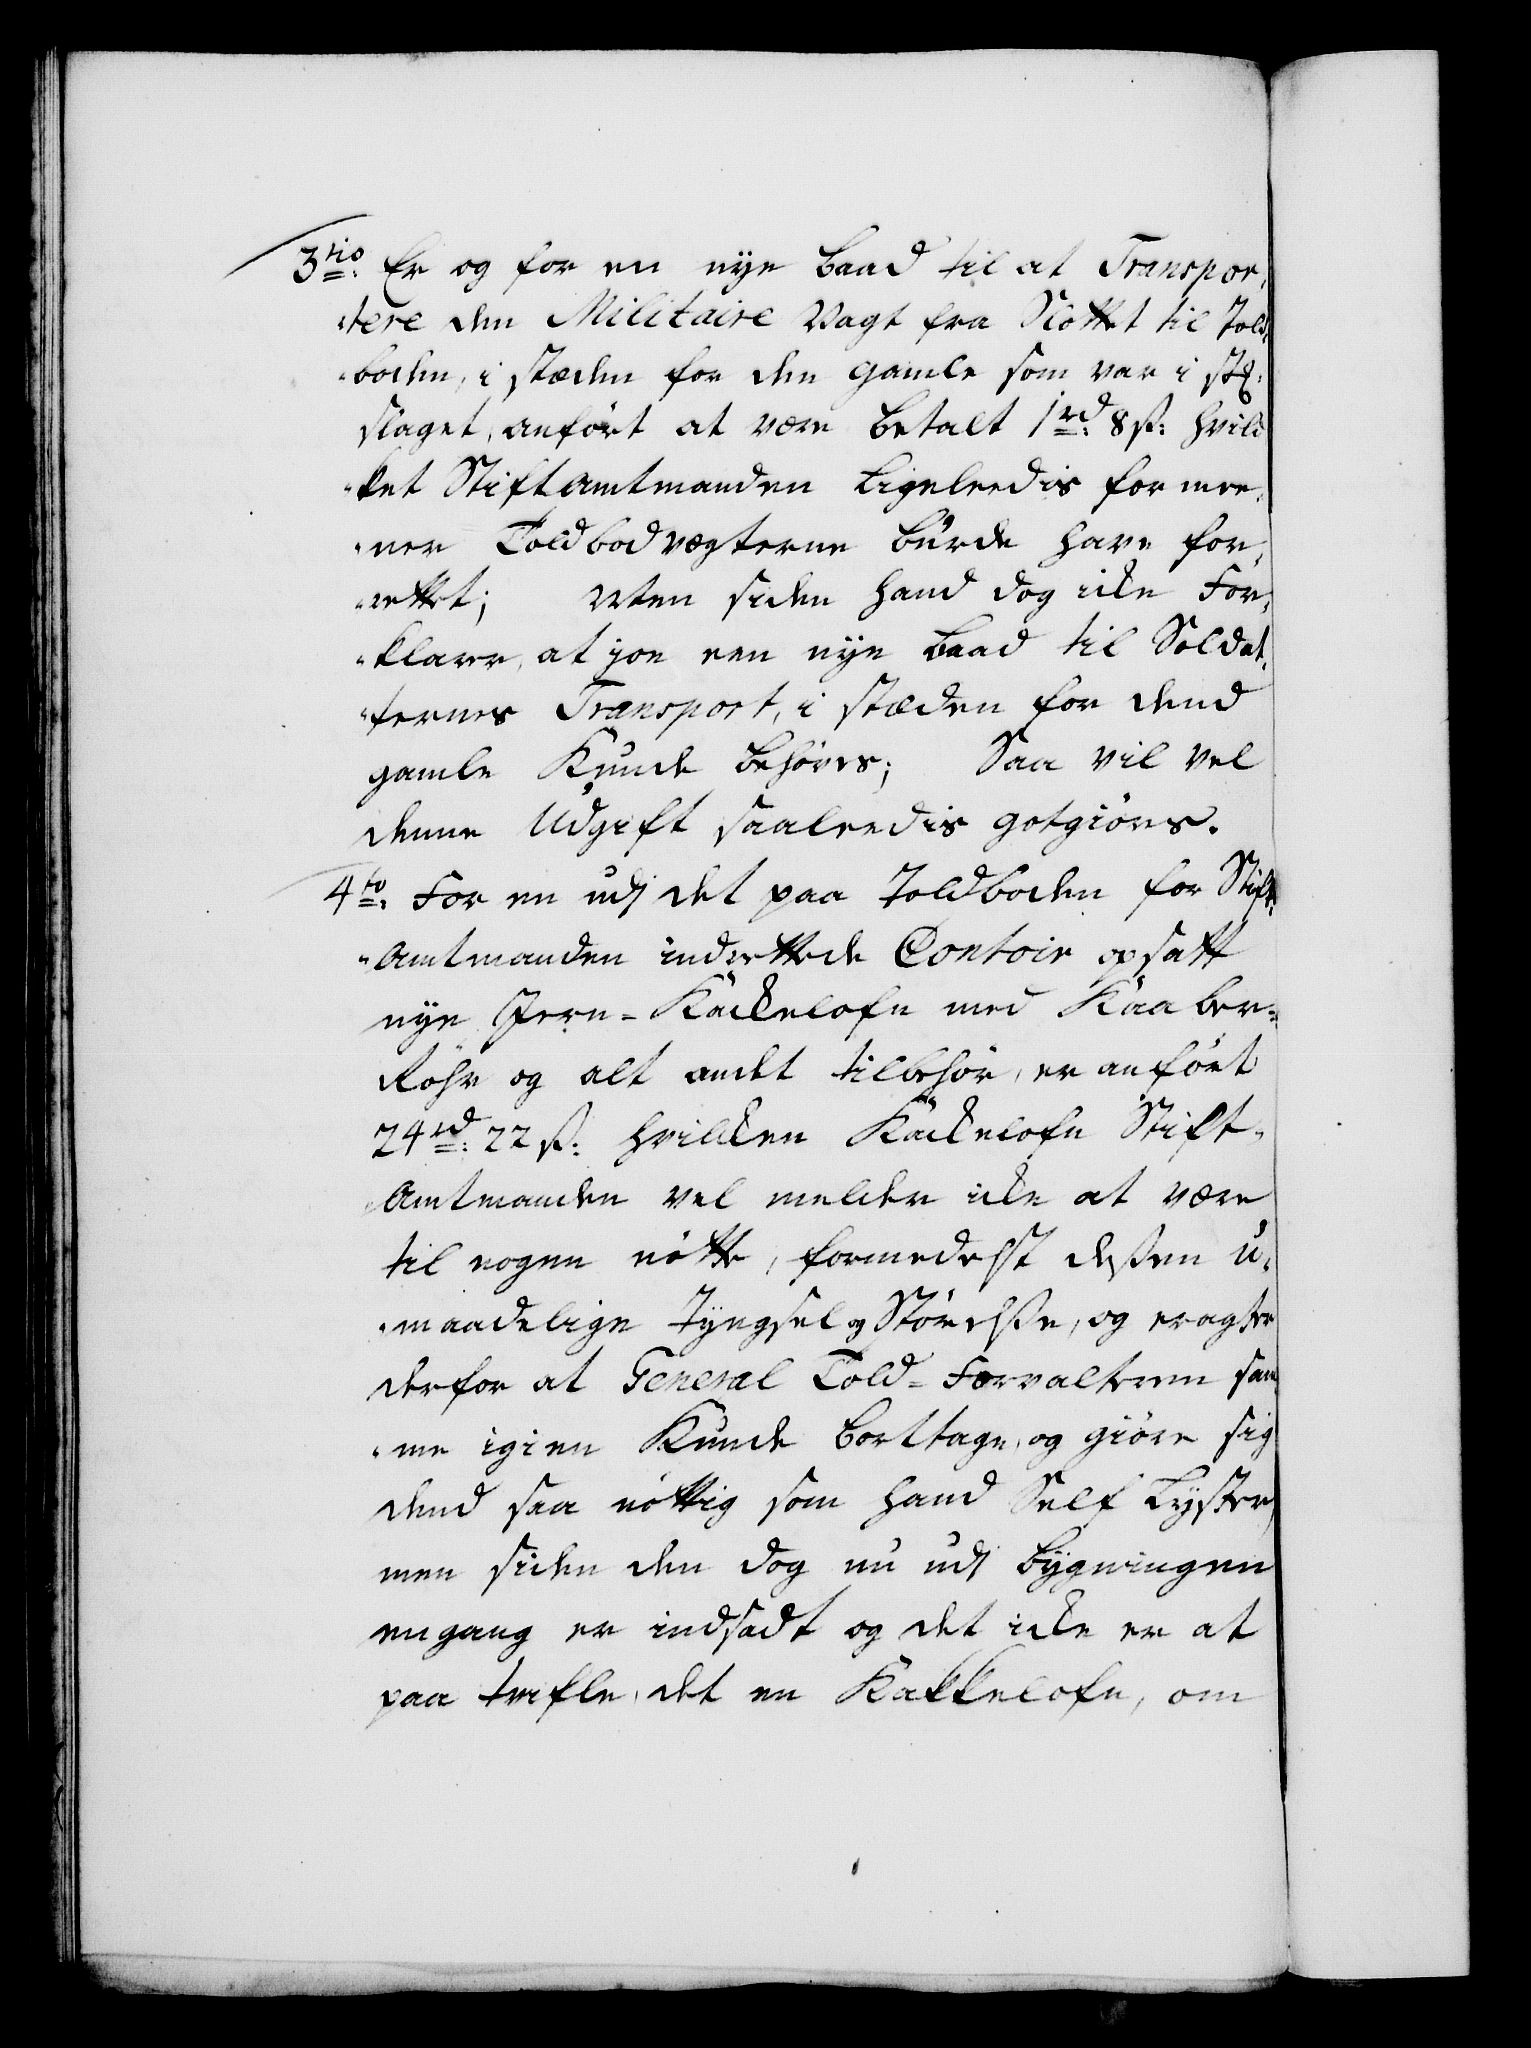 3tio: Er og for en nye Baad til at Transpor,
,tere den Militaire Vagt fra Slottet til Told,
,boden, i stæden for den gamle som var i stÿ,
slaget, anført at være betalt 1rd: 8ß: hvil¬
,ket Stiftamtmanden Ligeleedis for mee,
,ner Toldbodvægterne burde have for,
,rettet; Men siden hand dog icke For,
,klarer, at joe een nye Baad til Soldat,
,ternes Transport, i stæden for dend
gamle Kunde behøves; Saa vil vel
denne Udgift saaleedis gotgiøres.
4to: For en udj det paa Toldboden for Stift,
,Amtmanden indrettede Contoir opsatt
nye Jern-Kackelofn med Kaaber-
Røhr og alt andet tilbehør, er anført
24rd: 22ß: hvilcken Kackelofn Stift-
,Amtmanden vel melder icke at være
til nogen nøtte, formedelst deßen u,
,maadelige Tyngsel og Størelsse, og eragter
derfor at General Told-Forvalteren sam,
,me igien Kunde borttage, og giøre sig
dend saa nøttig som hand Self Lyster,
men siden den dog nu udj bygningen
engang er indsadt og det icke er at
paa tvifle, det en Kakkelofn, om